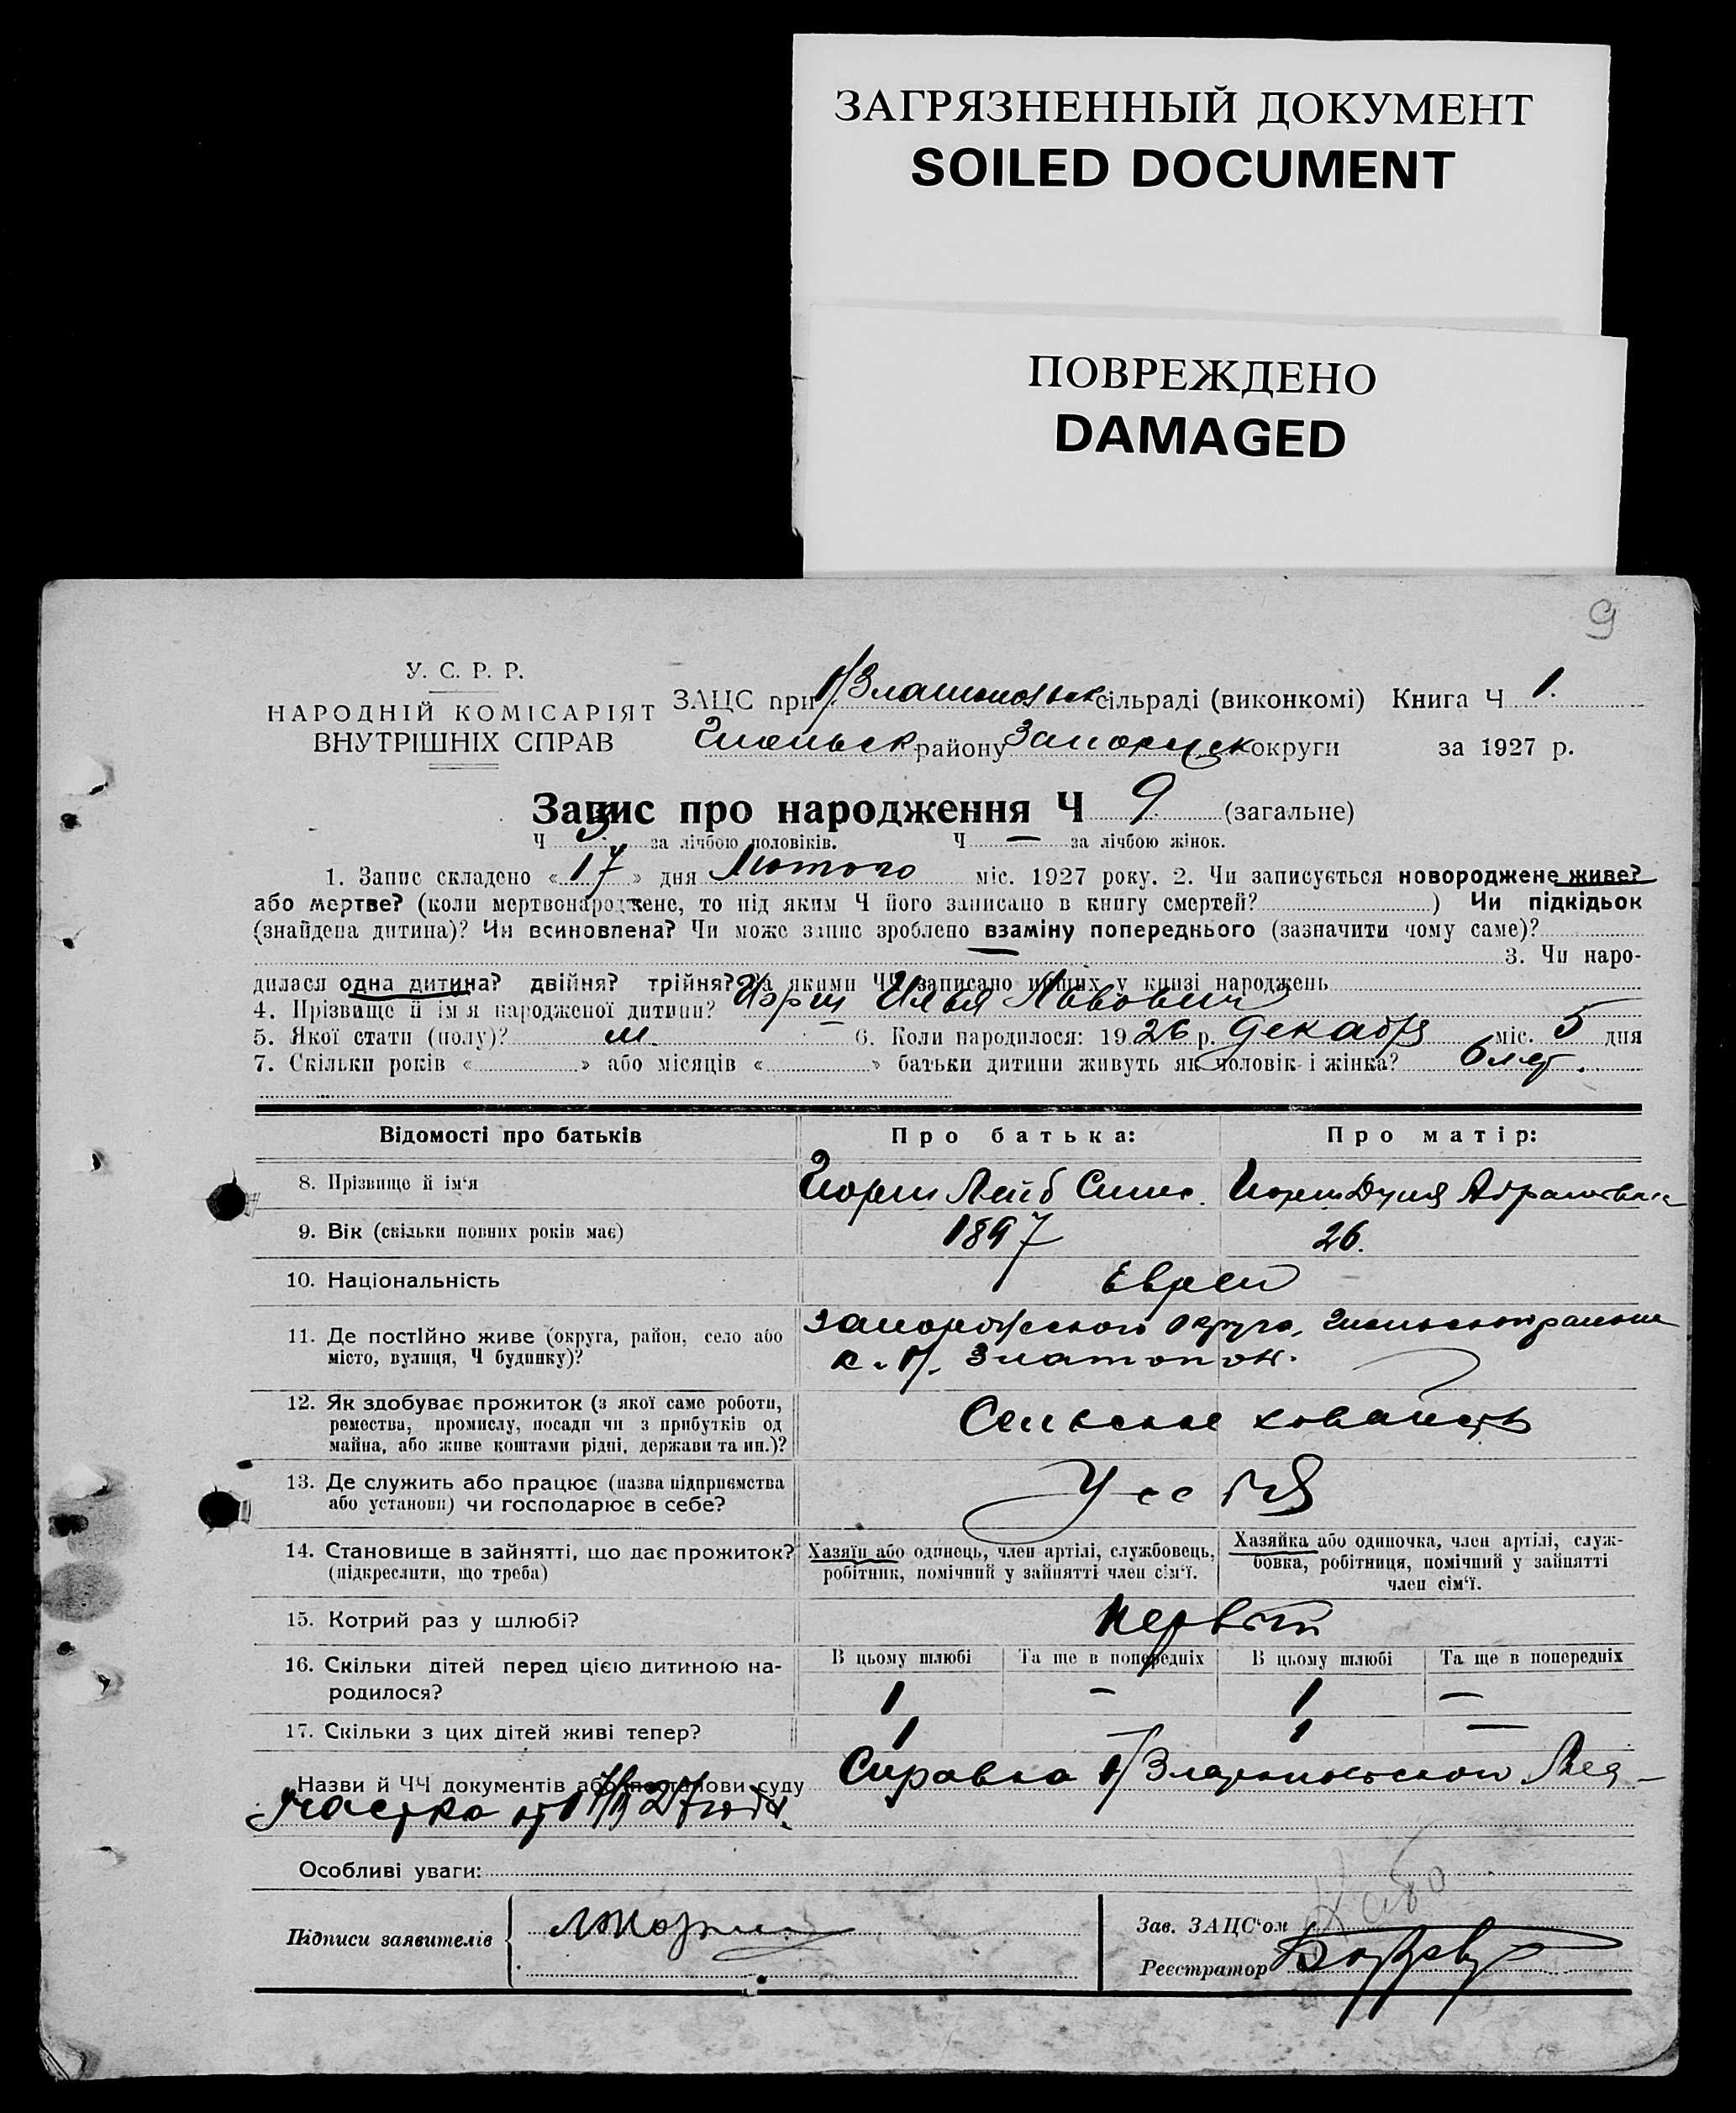 ЗАГРЯЗНЕННЫЙ ДОКУМЕНТ
SOILED DOCUMENT
ПОВРЕЖДЕНО
DAMAGED
9
У. С. Р. Р.
НАРОДНІЙ КОМІСАРІЯТ
ВНУТРІШНІХ СПРАВ
ЗАЦС при сільраді (виконкомі) Книга Ч 1.
району Запорізьк округи за 1927 р.
Запис про народження Ч 9 (загальне)
Ч 5 за лічбою чоловіків. Ч — за лічбою жінок.
1. Запис складено « 17 » дня Лютого міс. 1927 року. 2. Чи записується новороджене живе?
або мертве? (коли мертвонароджене, то під яким Ч його записано в книгу смертей? ) Чи підкідьок
(знайдена дитина)? Чи всиновлена? Чи може запис зроблено взаміну попереднього (зазначити чому саме)?
3. Чи наро-
дилася одна дитина? двійня? трійня? За якими ЧЧ записано инших у книзі народжень
4. Прізвище й ім'я народженої дитини? Илья Львович
5. Якої стати (полу)? м. 6. Коли народилося: 1926 р. декабря міс. 5 дня
7. Скільки років « » або місяців « » батьки дитини живуть як чоловік і жінка? 6 лет.
Відомості про батьків Про батька: Про матір:
8. Прізвище й ім'я Лейб Дуня Абрамовна
9. Вік (скільки повних років має) 1897 26.
10. Національність Евреи
11. Де постійно живе (округа, район, село або
місто, вулиця, Ч будинку)?
Запорожского округа, района
12. Як здобуває прожиток (з якої саме роботи,
ремества, промислу, посади чи з прибутків од
майна, або живе коштами рідні, держави та ин.)?
Сельское
13. Де служить або працює (назва підприємства
або установи) чи господарює в себе?
У себя
14. Становище в зайнятті, що дає прожиток?
(підкреслити, що треба)
Хазяїн або одинець, член артілі, службовець,
робітник, помічний у зайнятті член сім'ї.
Хазяйка або одиночка, член артілі, служ-
бовка, робітниця, помічний у зайнятті
член сім'ї.
15. Котрий раз у шлюбі? Первый
16. Скільки дітей перед цією дитиною на-
родилося?
В цьому шлюбі Та ще в попередніх В цьому шлюбі Та ще в попередніх
1 — 1 —
17. Скільки з цих дітей живі тепер? 1 — 1 —
Назви й ЧЧ документів або постанови суду Справка Мед-
участка от 27 года.
Особливі уваги:
Підписи заявителів
Зав. ЗАЦС'ом
Реєстратор